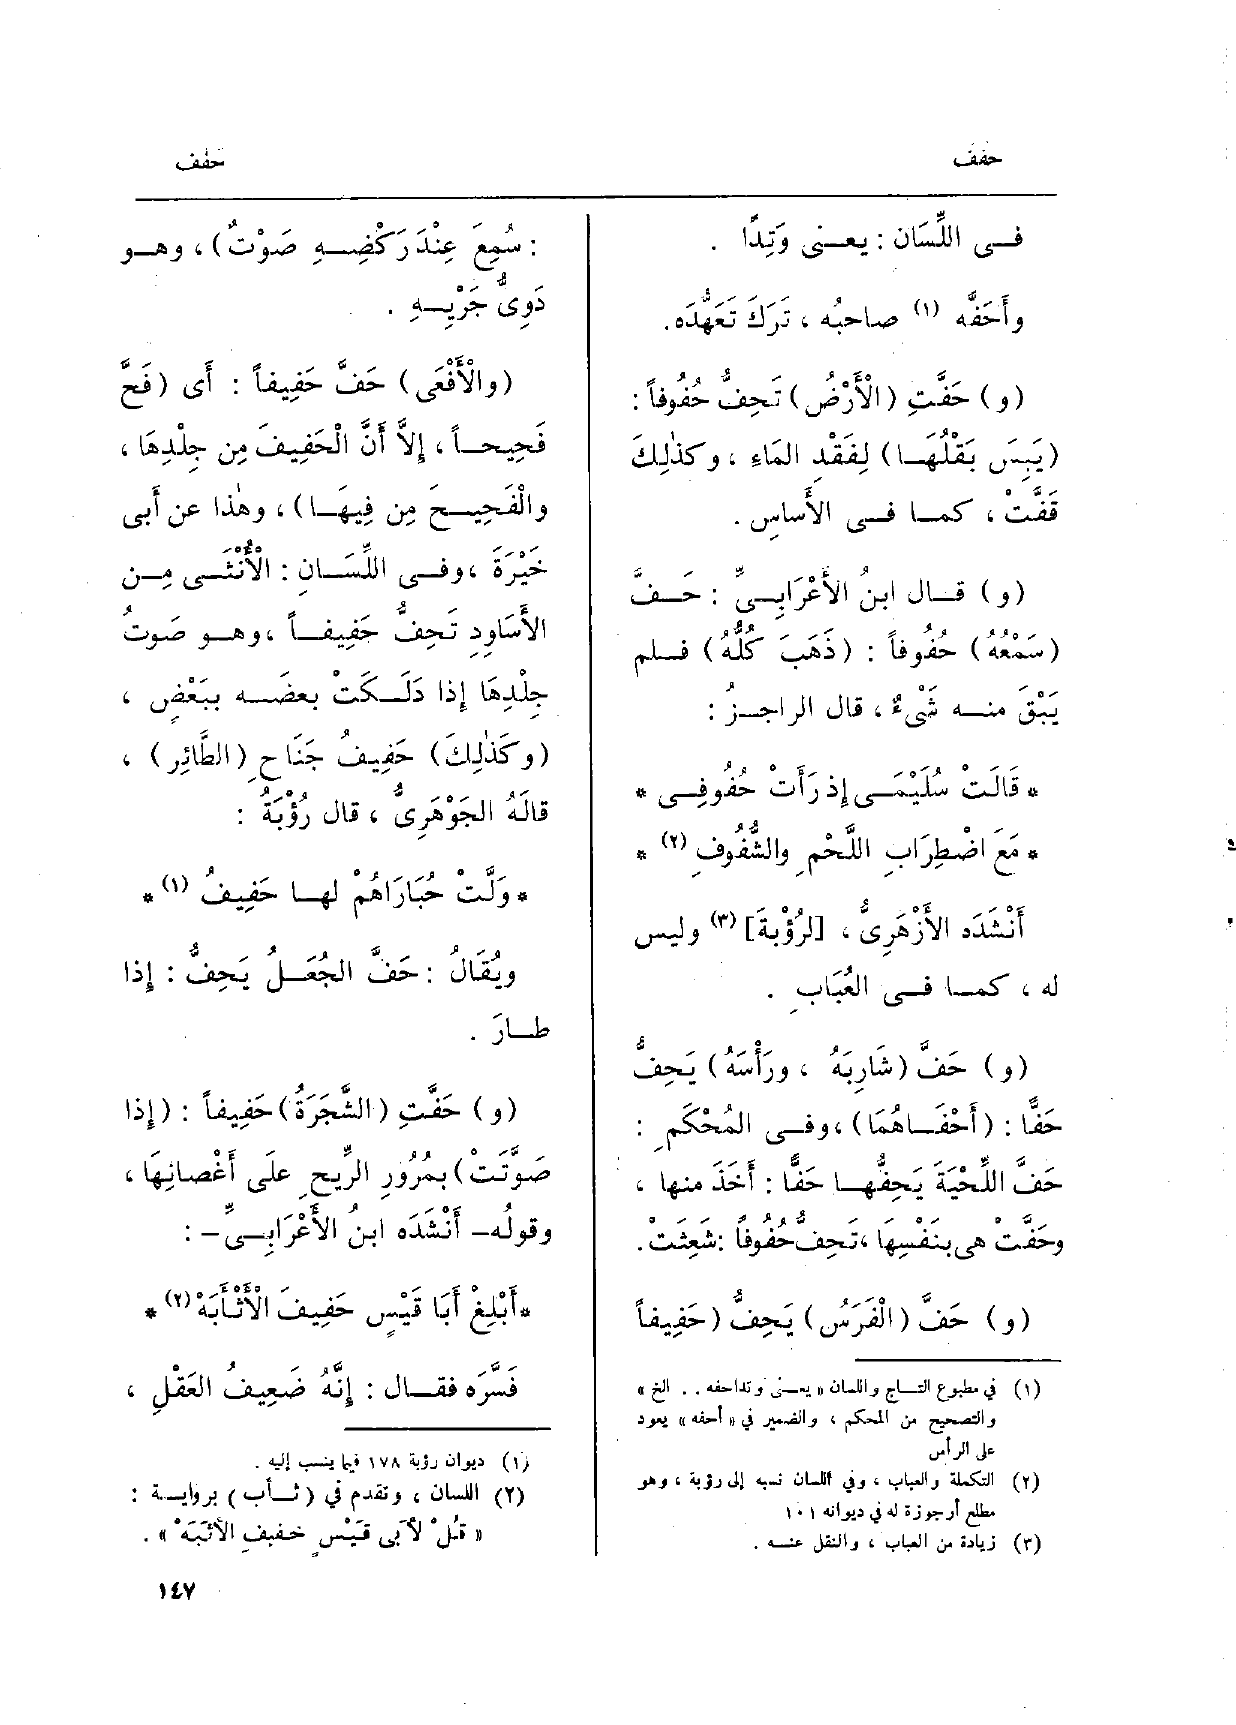 حفف
حفف
فى اللِّسَان : يعنى وَتِدًا .
وأَحَفَّه (١) صاحبُه ، تَرَكَ تَعَهُّدَه.
(و) حَفَّتِ (الْأَرْضُ) تَحِفُّ حُفُوفاً :
(يَبِسَ بَقْلُهَا) لِفَقْدِ المَاءِ ، وكذٰلِكَ
قَفَّتْ ، كما فى الأَساسِ .
(و) قال ابنُ الأَعْرَابِىِّ : حَفَّ
(سَمْعُهُ) حُفُوفاً : (ذَهَبَ كُلُّهُ) فلم
يَبْقَ منه شَىْءٌ ، قال الراجزُ :
* قَالَتْ سُلَيْمَى إِذ رَأَتْ حُفُوفِى *
* مَعَ اضْطِرَابِ اللَّحْمِ والشُّفُوفِ (٢) *
أَنْشَدَه الأَزْهَرِىُّ ، [لرُؤْبةَ] (٣) وليس
له ، كما فى العُبَابِ .
(و) حَفَّ (شَارِبَهُ ، ورَأْسَهُ) يَحِفُّ
حَفًّا : (أَحْفَاهُمَا) ، وفى المُحْكَمِ :
حَفَّ اللِّحْيَةَ يَحفُّها حَفًّا : أَخَذَ منها ،
وحَفَّتْ هى بنَفْسِها ، تَحِفُّ حُفُوفاً : شَعِثَتْ.
(و) حَفَّ (الْفَرَسُ) يَحِفُّ (حَفِيفاً
(١) في مطبوع التاج واللسان « يعنى وتداحفه . . الخ »
والتصحيح من المحكم ، والضمير في « أحفه » يعود
على الرأس
(٢) التكملة والعباب ، وفي اللسان نسبه إلى رؤبة ، وهو
مطلع أرجوزة له في ديوانه ١٠١
(٣) زيادة من العباب ، والنقل عنه .
: سُمِعَ عِنْدَ رَكْضِهِ صَوْتٌ) ، وهو
دَوِىُّ جَرْيِهِ .
(والْأَفْعَى) حَفَّ حَفِيفاً : أَى (فَحَّ
فَحِيحاً ، إِلاَّ أَنَّ الْحَفِيفَ مِن جِلْدِهَا ،
والْفَحِيحَ مِن فِيهَا) ، وهٰذا عن أَبى
خَيْرَةَ ، وفى اللِّسَانِ : الْأُنْثَى مِن
الأَسَاوِدِ تَحِفُّ حَفِيفاً ، وهو صَوتُ
جِلْدِهَا إِذا دَلَكَتْ بعضَه بِبَعْضٍ ،
(وكَذٰلِكَ) حَفِيفُ جَنَاحِ (الطَّائِرِ) ،
قالَهُ الجَوْهَرِىُّ ، قال رُؤْبَةُ :
* وَلَّتْ حُبَارَاهُمْ لها حَفِيفُ (١) *
ويُقَالُ : حَفَّ الجُعَلُ يَحِفُّ : إِذا
طارَ .
(و) حَفَّتِ (الشَّجَرَةُ) حَفِيفاً : (إِذا
صَوَّتَتْ) بمُرُورِ الرِّيحِ على أَغْصانِهَا ،
وقولُه- أَنْشَدَه ابنُ الأَعْرَابِىِّ- :
* أَبْلِغْ أَبَا قَيْسٍ حَفِيفَ الْأَثْأَبَهْ (٢) *
فَسَّرَه فقال : إِنَّهُ ضَعِيفُ العَقْلِ ،
(١) ديوان رؤبة ١٧٨ فيما ينسب إليه .
(٢) اللسان ، وتقدم في (ثأب) برواية :
« قُلْ لأَبى قَيْسٍ خفيف الأَثَبَهْ » .
١٤٧